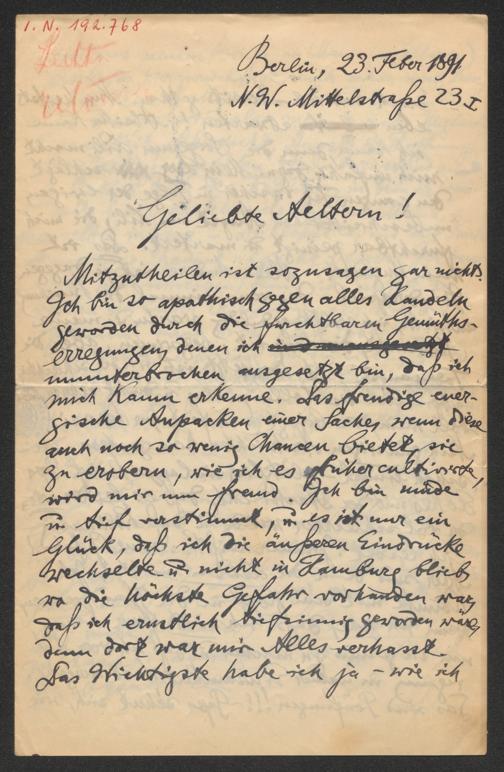 I. N. 192.768
Berlin, 23. Feber 1891
N. W. Mittelstraße 23 I
Geliebte Aeltern!
Mitzutheilen ist sozusagen gar nichts.
Ich bin so apathisch gegen alles Handeln
geworden durch die furchtbaren Gemüths-
erregungen, denen ich
ununterbrochen ausgesetzt bin, daß ich
mich kaum erkenne. Das freudige ener-
gische Anpacken einer Sache, wenn diese
auch noch so wenig Chancen bietet, sie
zu erobern, wie ich es früher cultivirte,
wird mir nun fremd. Ich bin müde
u. tief verstimmt, u. es ist nur ein
Glück, daß ich die äußeren Eindrücke
wechselte u. nicht in Hamburg blieb,
wo die höchste Gefahr vorhanden war,
daß ich ernstlich tiefsinnig geworden wäre,
denn dort war mir Alles verhasst.
Das Wichtigste habe ich ja – wie ich